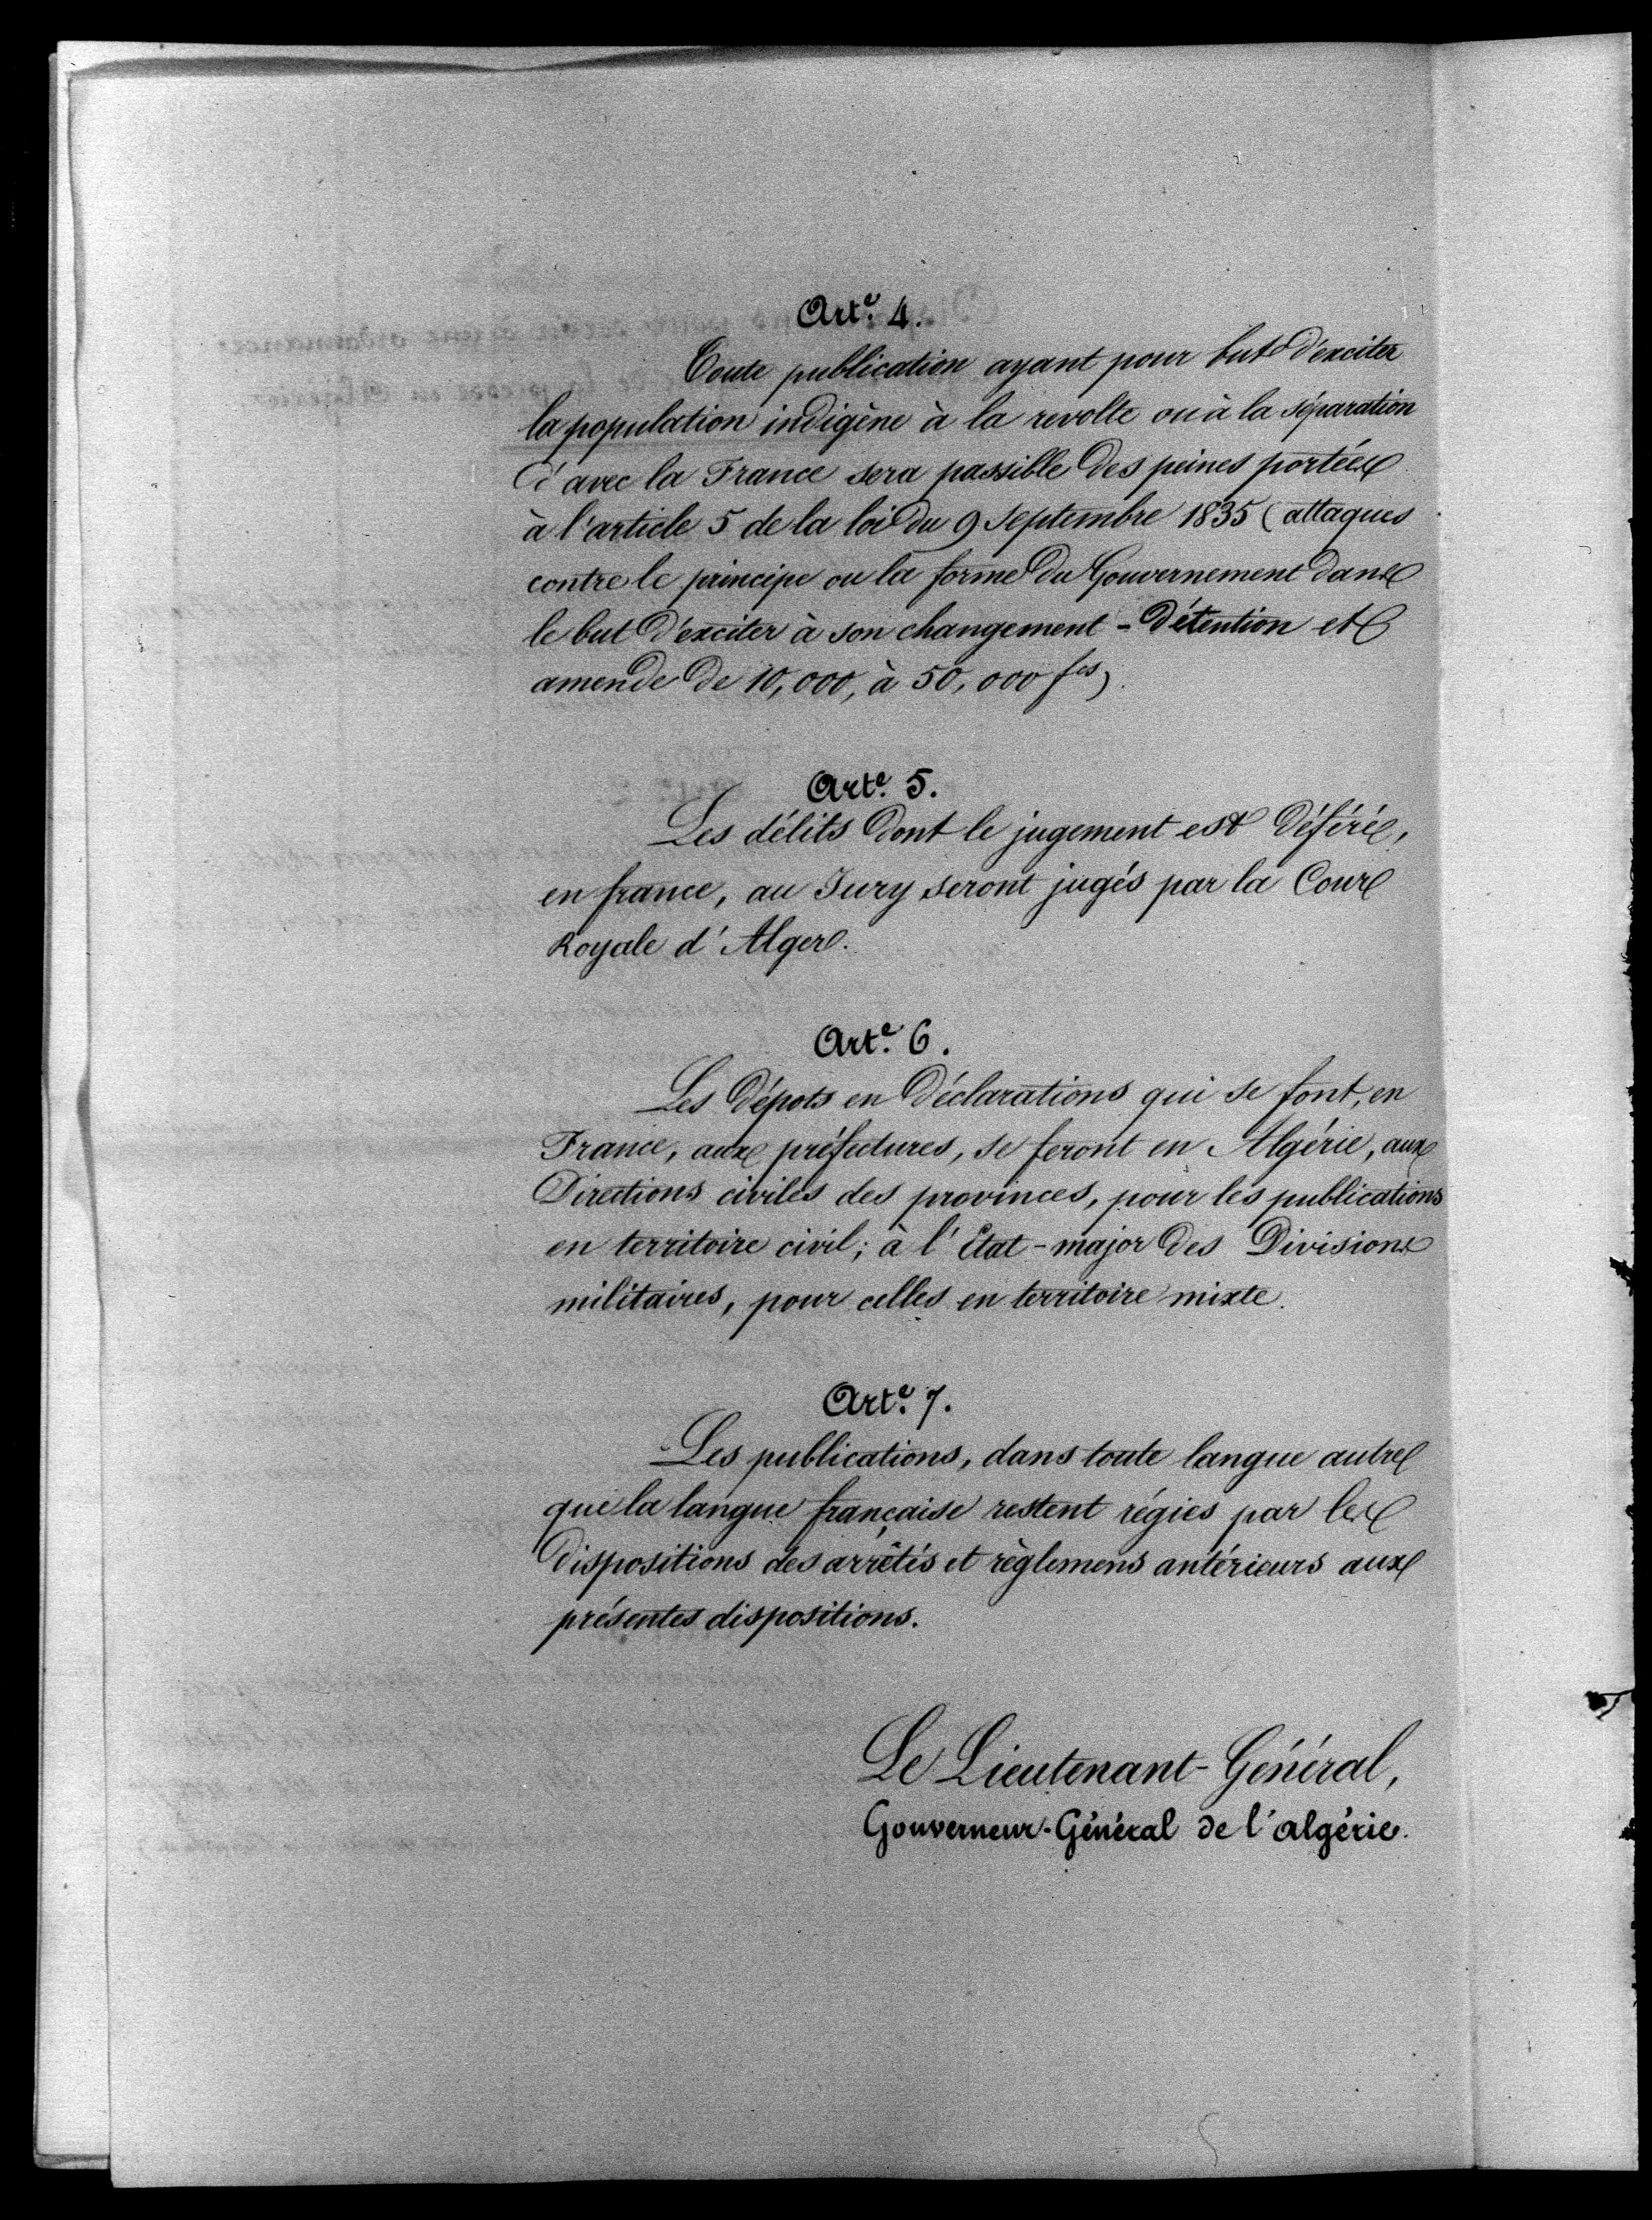 Art.e 4.
Toute publication ayant pour but d'exciter
la population indigène à la revolte ou à la séparation
d'avec la France sera passible des peines portées
à l'article 5 de la loi du 9 Septembre 1835 (attaques
contre le principe ou la forme du Gouvernement dans
le but d'exciter à son changement - détention et
amende de 10,000, à 50,000 fcs).
Art.e 5.
Les délits dont le jugement est déféré,
en france, au Jury seront jugés par la Cour
Royale d'Alger.
Art.e 6.
Les dépots en déclarations qui se font, en
France, aux préfectures, se feront en Algérie, aux
Directions civiles des provinces, pour les publications
en territoire civil; à l'État-major des Divisions
militaires, pour celles en territoire mixte.
Art.e 7.
Les publications, dans toute langue autre
que la langue française restent régies par les
dispositions des arrêtés et règlemens antérieurs aux
présentes dispositions.
Le Lieutenant-Général,
Gouverneur-Général de l'algérie.